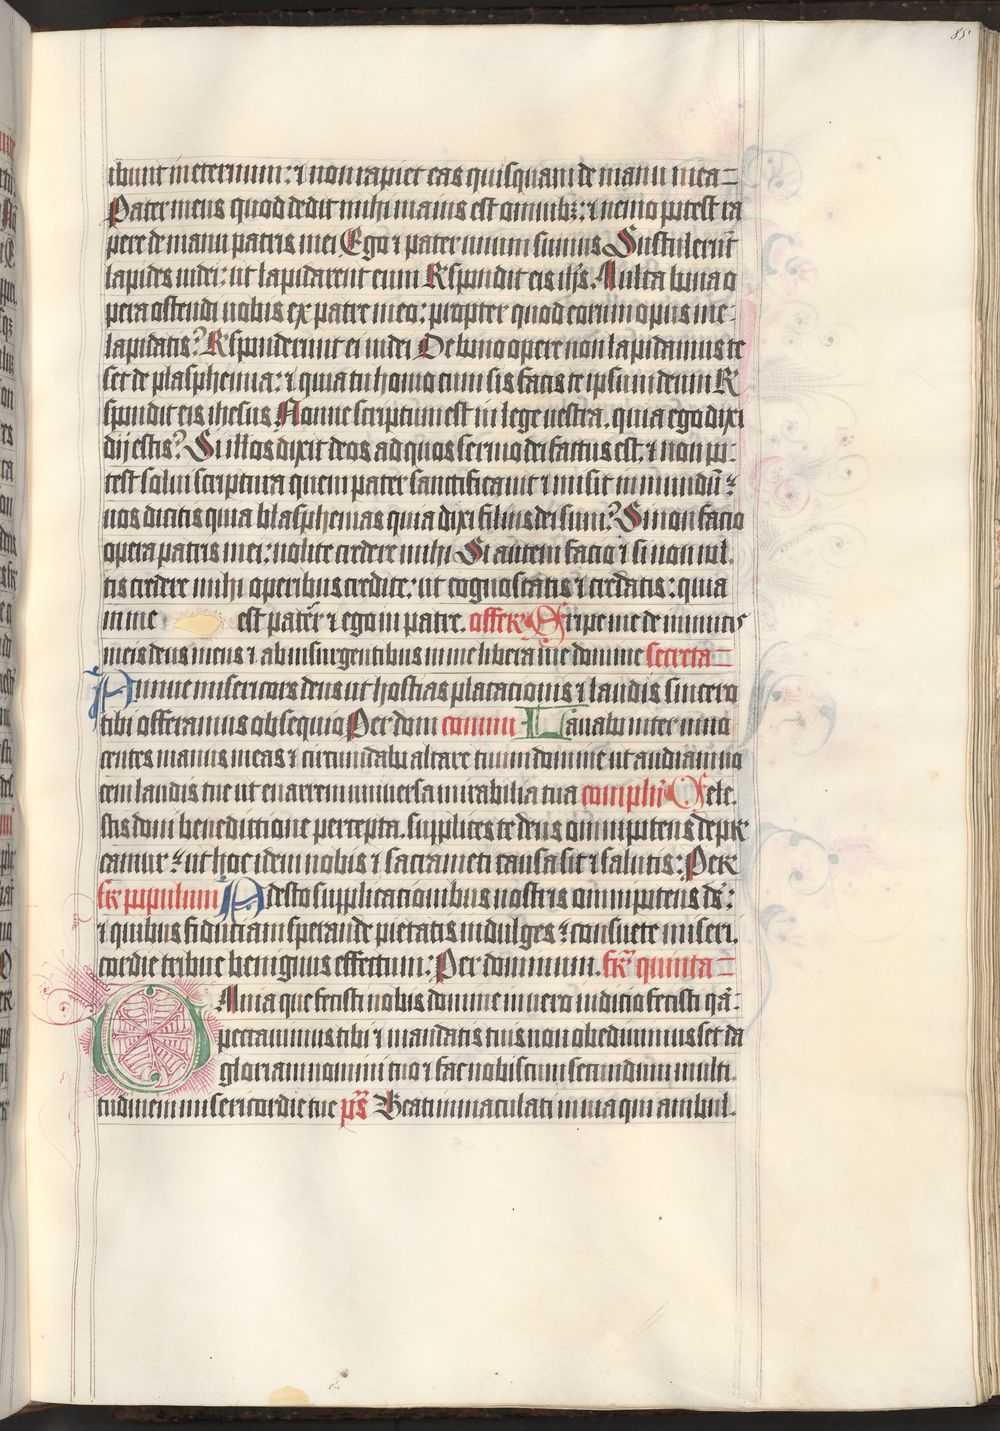 85
ibunt ineternum: ⁊ non rapiet eas quisquam de manu mea
Pater meus quod dedit mihi maius est omnibꝫ: ⁊ nemo potest ra
pere de manu patris mei Ego ⁊ pater unum sumus Sustulerūt
lapides iudei: ut lapidarent eum Rspondit eis ihs. Multa bona o
pera ostendi uobis ex patre meo: propter quod eorum opus me
lapidatis? Rsponderunt ei iudei De bono opere non lapidamus te
set de plasphemia: ⁊ quia tu homo cum sis facis te ipsum deum R
spondit eis ihesus Nonne scriptum est in lege uestra. quia ego dixi
dij estis? Si illos dixit deos ad quos sermo dei factus est. ⁊ non po:
test solui scriptura quem pater sanctificauit ⁊ misit in mundū:
uos dicitis quia blasphemas quia dixi filius dei sum? Si non facio
opera patris mei: nolite credere mihi Si autem facio ⁊ si non uul.
tis credere mihi operibus credite: ut cognoscatis ⁊ credatis: quia
in me est pater ⁊ ego in patre. offer Eripe me de inimicis
meis deus meus ⁊ ab insurgentibus in me libera me domine secreta
Annue misericors deus ut hostias placacionis ⁊ laudis sincero
tibi offeramus obsequio Per dom commu Lauabo inter inno
centes manus meas ⁊ circumdabo altare tuum domine ut audiam uo
cem laudis tue ut enarrem uniuersa mirabilia tua complē Cele.
stis doni benedictione percepta. supplices te deus omnipotens depre
camur: ut hoc idem nobis ⁊ sacramēti causa sit ⁊ salutis: Per
sr populum Adesto supplicacionibus nostris omnipotens ds:
⁊ quibus fiduciam sperande pietatis indulges: consuete miseri.
cordie tribue benignus effectum: Per dominum. fr quinta
Omnia que fecisti nobis domine in uero iudicio fecisti qā:
peccauimus tibi ⁊ mandatis tuis non obediuimus set da
gloriam nomini tuo ⁊ fac nobiscum secundum multi.
tudinem misericordie tue ps Beati inmaculati in uia qui ambul.